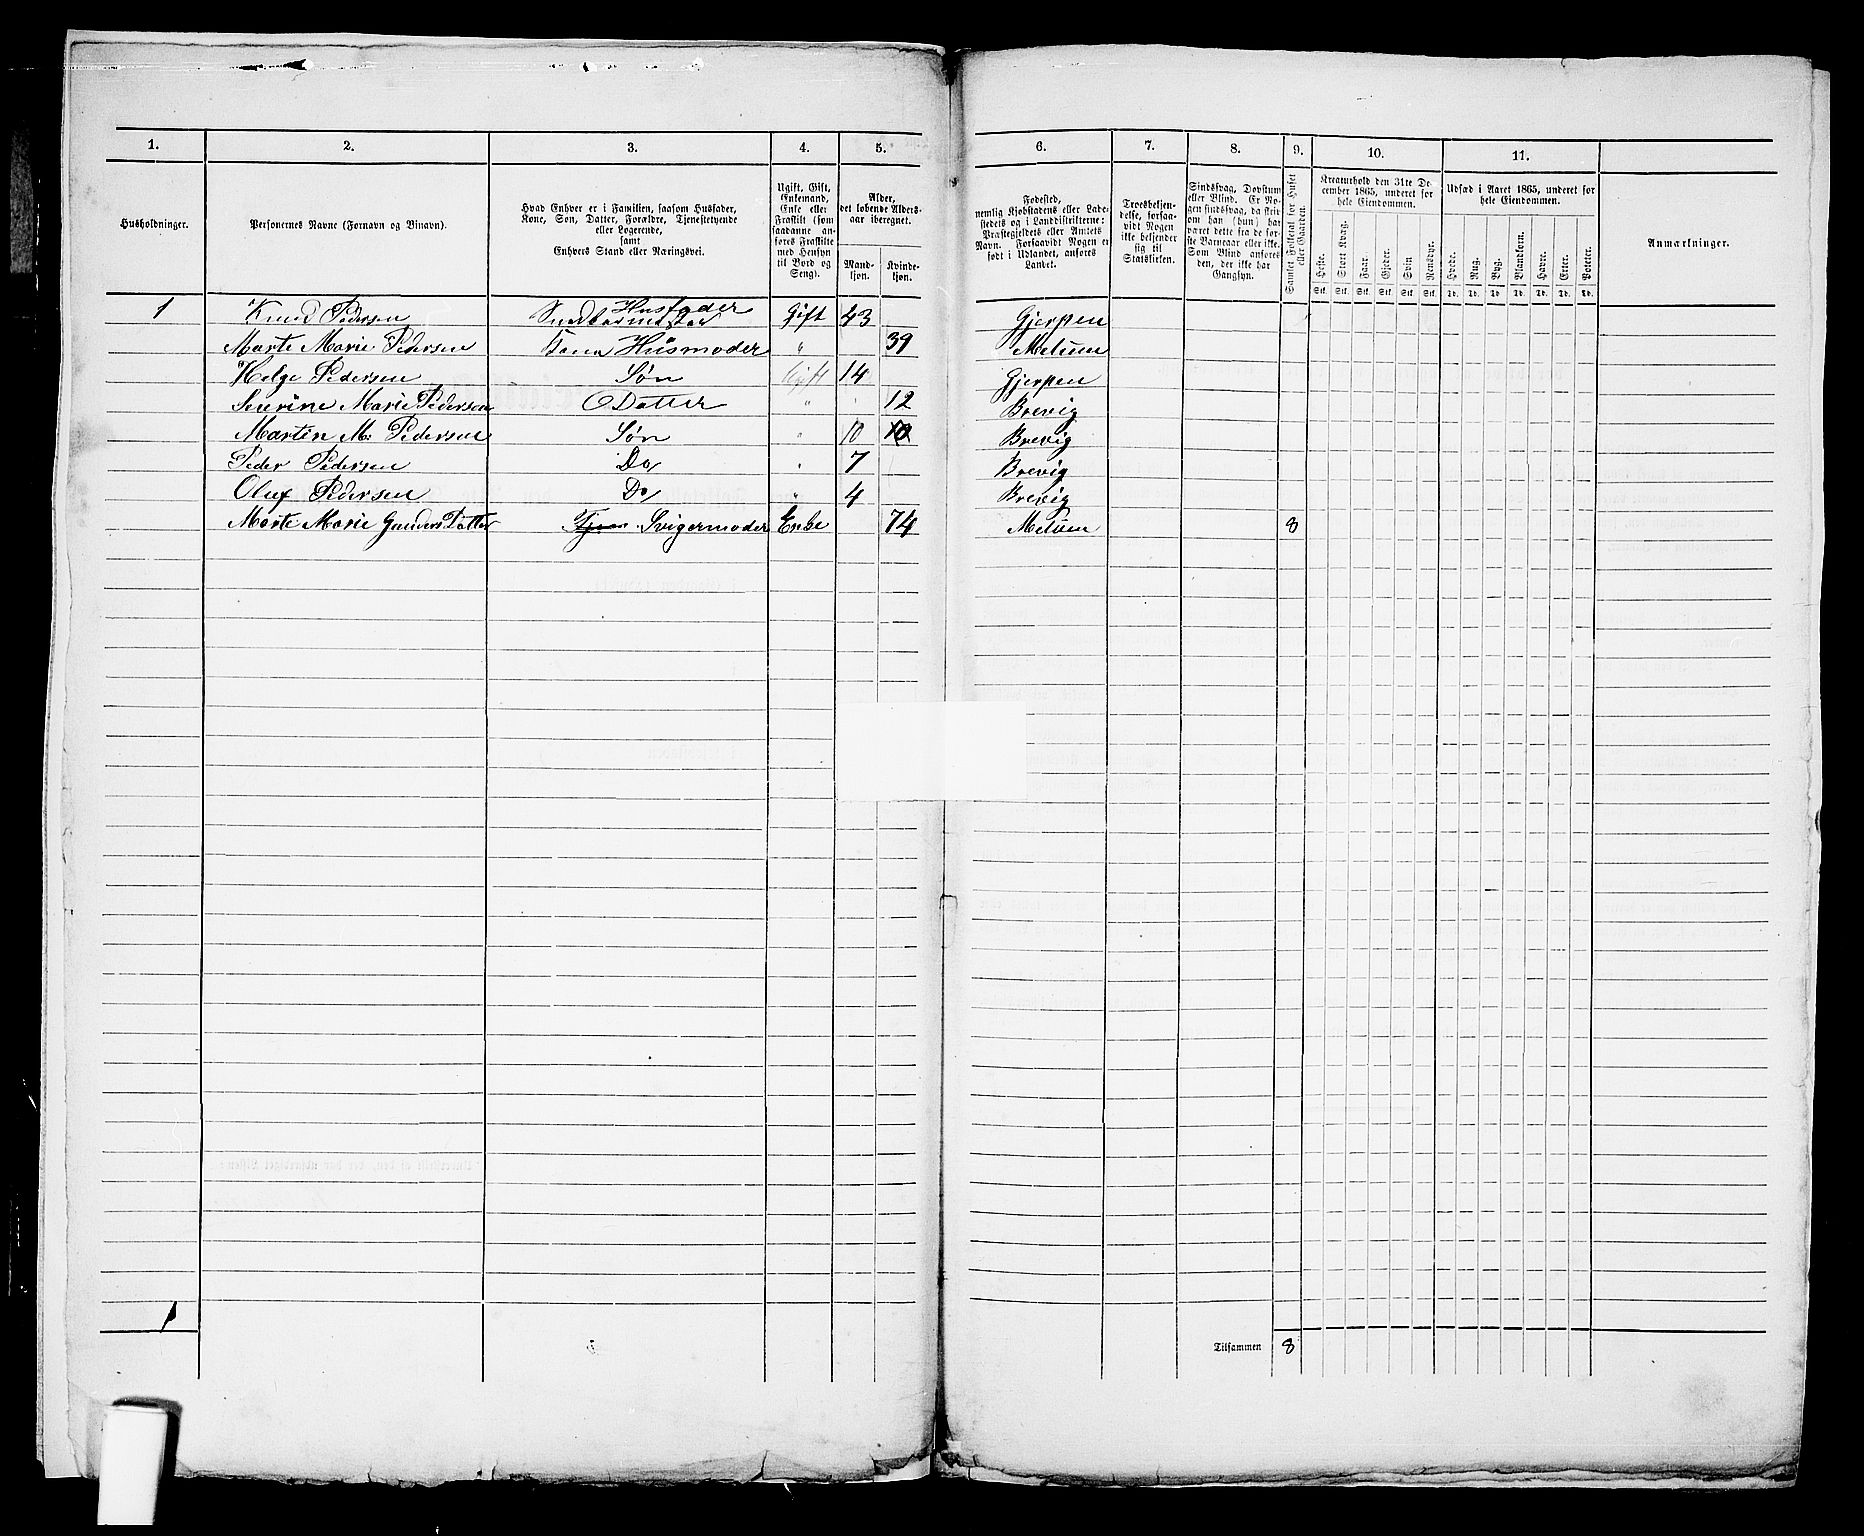 1. 2. 3. 4. 5. 6. 7. 8. 9. 10. 11.
Husholdninger.
Personernes Navne (Fornavn og Binavn).
Hvad Enhver er i Familien, saasom Husfader,
Kone, Søn, Datter, Forældre, Tjenestetyende
eller Logerende,
samt
Enhvers Stand eller Næringsvei.
Ugift, Gift,
Enkemand,
Enke eller
Fraskilt (som
saadanne an-
føres Fraskilte
med Hensyn
til Bord og
Seng).
Alder,
det løbende Alders-
aar iberegnet.
Mand-
kjøn.
Kvinde-
kjøn.
Fødested,
nemlig Kjøbstadens eller Lade-
stedets og i Landdistrikterne:
Præstegjeldets eller Amtets
Navn. Forsaavidt Nogen er
født i Udlandet, anføres
Landet.
Troesbekjen-
delse, forsaa-
vidt Nogen
ikke bekjender
sig til
Statskirken.
Sindssvag, Døvstum
eller Blind. Er No-
gen sindssvag, da skri-
ves om han (hun) har
været dette fra de før-
ste Barneaar eller ikke.
Som Blind anføres
den, der ikke har
Gangsyn.
Kreaturhold den 31te De-
cember 1865, underet for
hele Eiendommen.
Heste. Stort Kvæg. Faar. Gjeder. Svin Rensdyr.
Stk. Stk. Stk. Stk. Stk. Stk.
Udsæd i Aaret 1865, underet for
hele Eiendommen.
Hvede. Rug. Byg. Blandkorn. Havre. Erter. Poteter.
Td. Td. Td. Td. Td. Td. Td.
Anmærkninger.
1 Knud Pedersen Husfader Gift 43 Gjerpen
Marte Marie Pedersen Husmoder " 39 Melum
Helge Pedersen Søn Ugift 14 Gjerpen
Severine Marie Pedersen Datter " 12 Brevig
Marten M: Pedersen Søn " 10 10 Brevig
Peder Pedersen Do " 7 Brevig
Oluf Pedersen Do " 4 Brevig
Marte Marie Gunders Datter Svigermoder Enke 74 Melum 8
1
Tilsammen 8